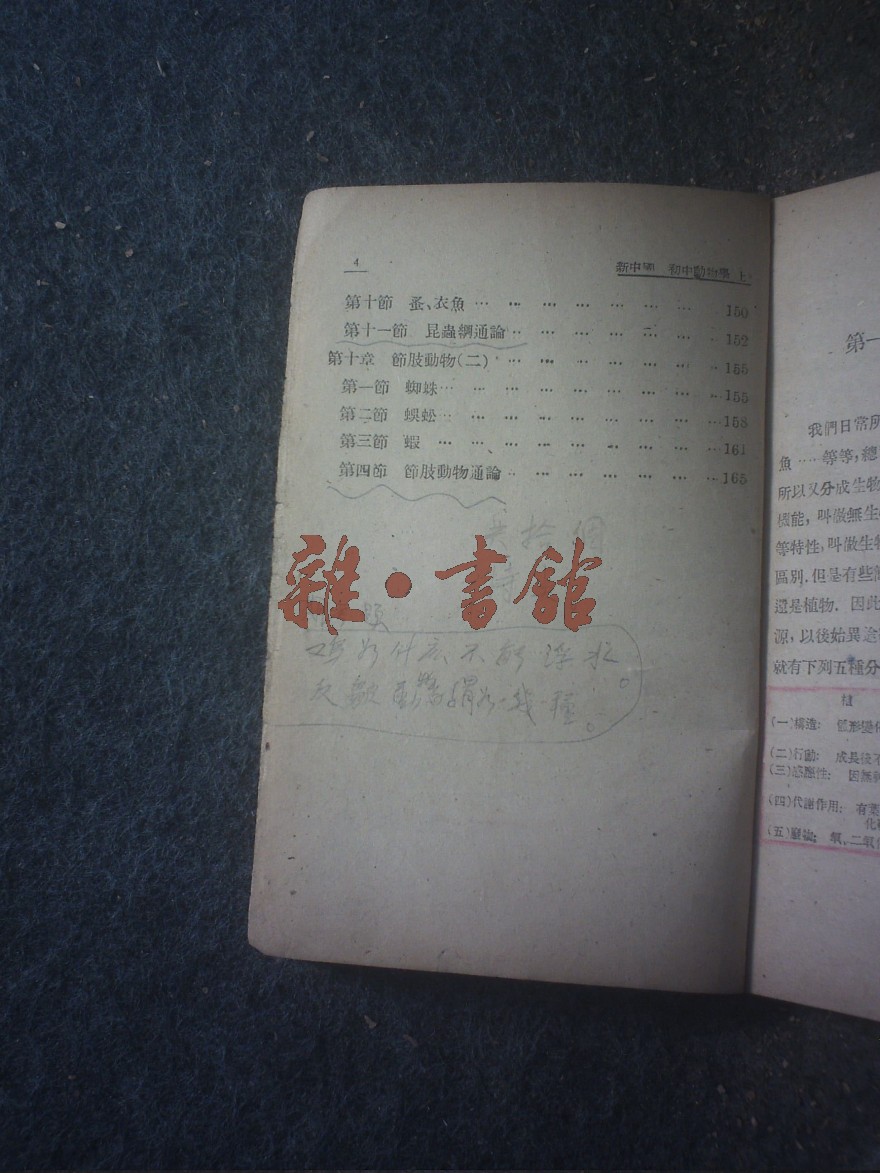 4
新中國 初中動物學 上
第十節 蚤、衣魚 … … … … … … … … 150
第十一節 昆蟲綱通論 … … … … … … … 152
第十章 節肢動物(二) … … … … … … … 155
第一節 蜘蛛 … … … … … … … … … 155
第二節 蜈蚣 … … … … … … … … … 158
第三節 蝦 … … … … … … … … … 161
第四節 節肢動物通論 … … … … … … … 165
拾個
雜·書館
題
什 不能浮
反芻動物 幾種。
第一
我們日常所
魚……等等,總
所以又分成生物
機能,叫做無生
等特性,叫做生物
區別.但是有些
還是植物.因此
源,以後始異途
就有下列五種分
植
(一)構造:
(二)行動: 成長後不
(三)感應性: 因無
(四)代謝作用: 有葉
(五) 氧、二氧